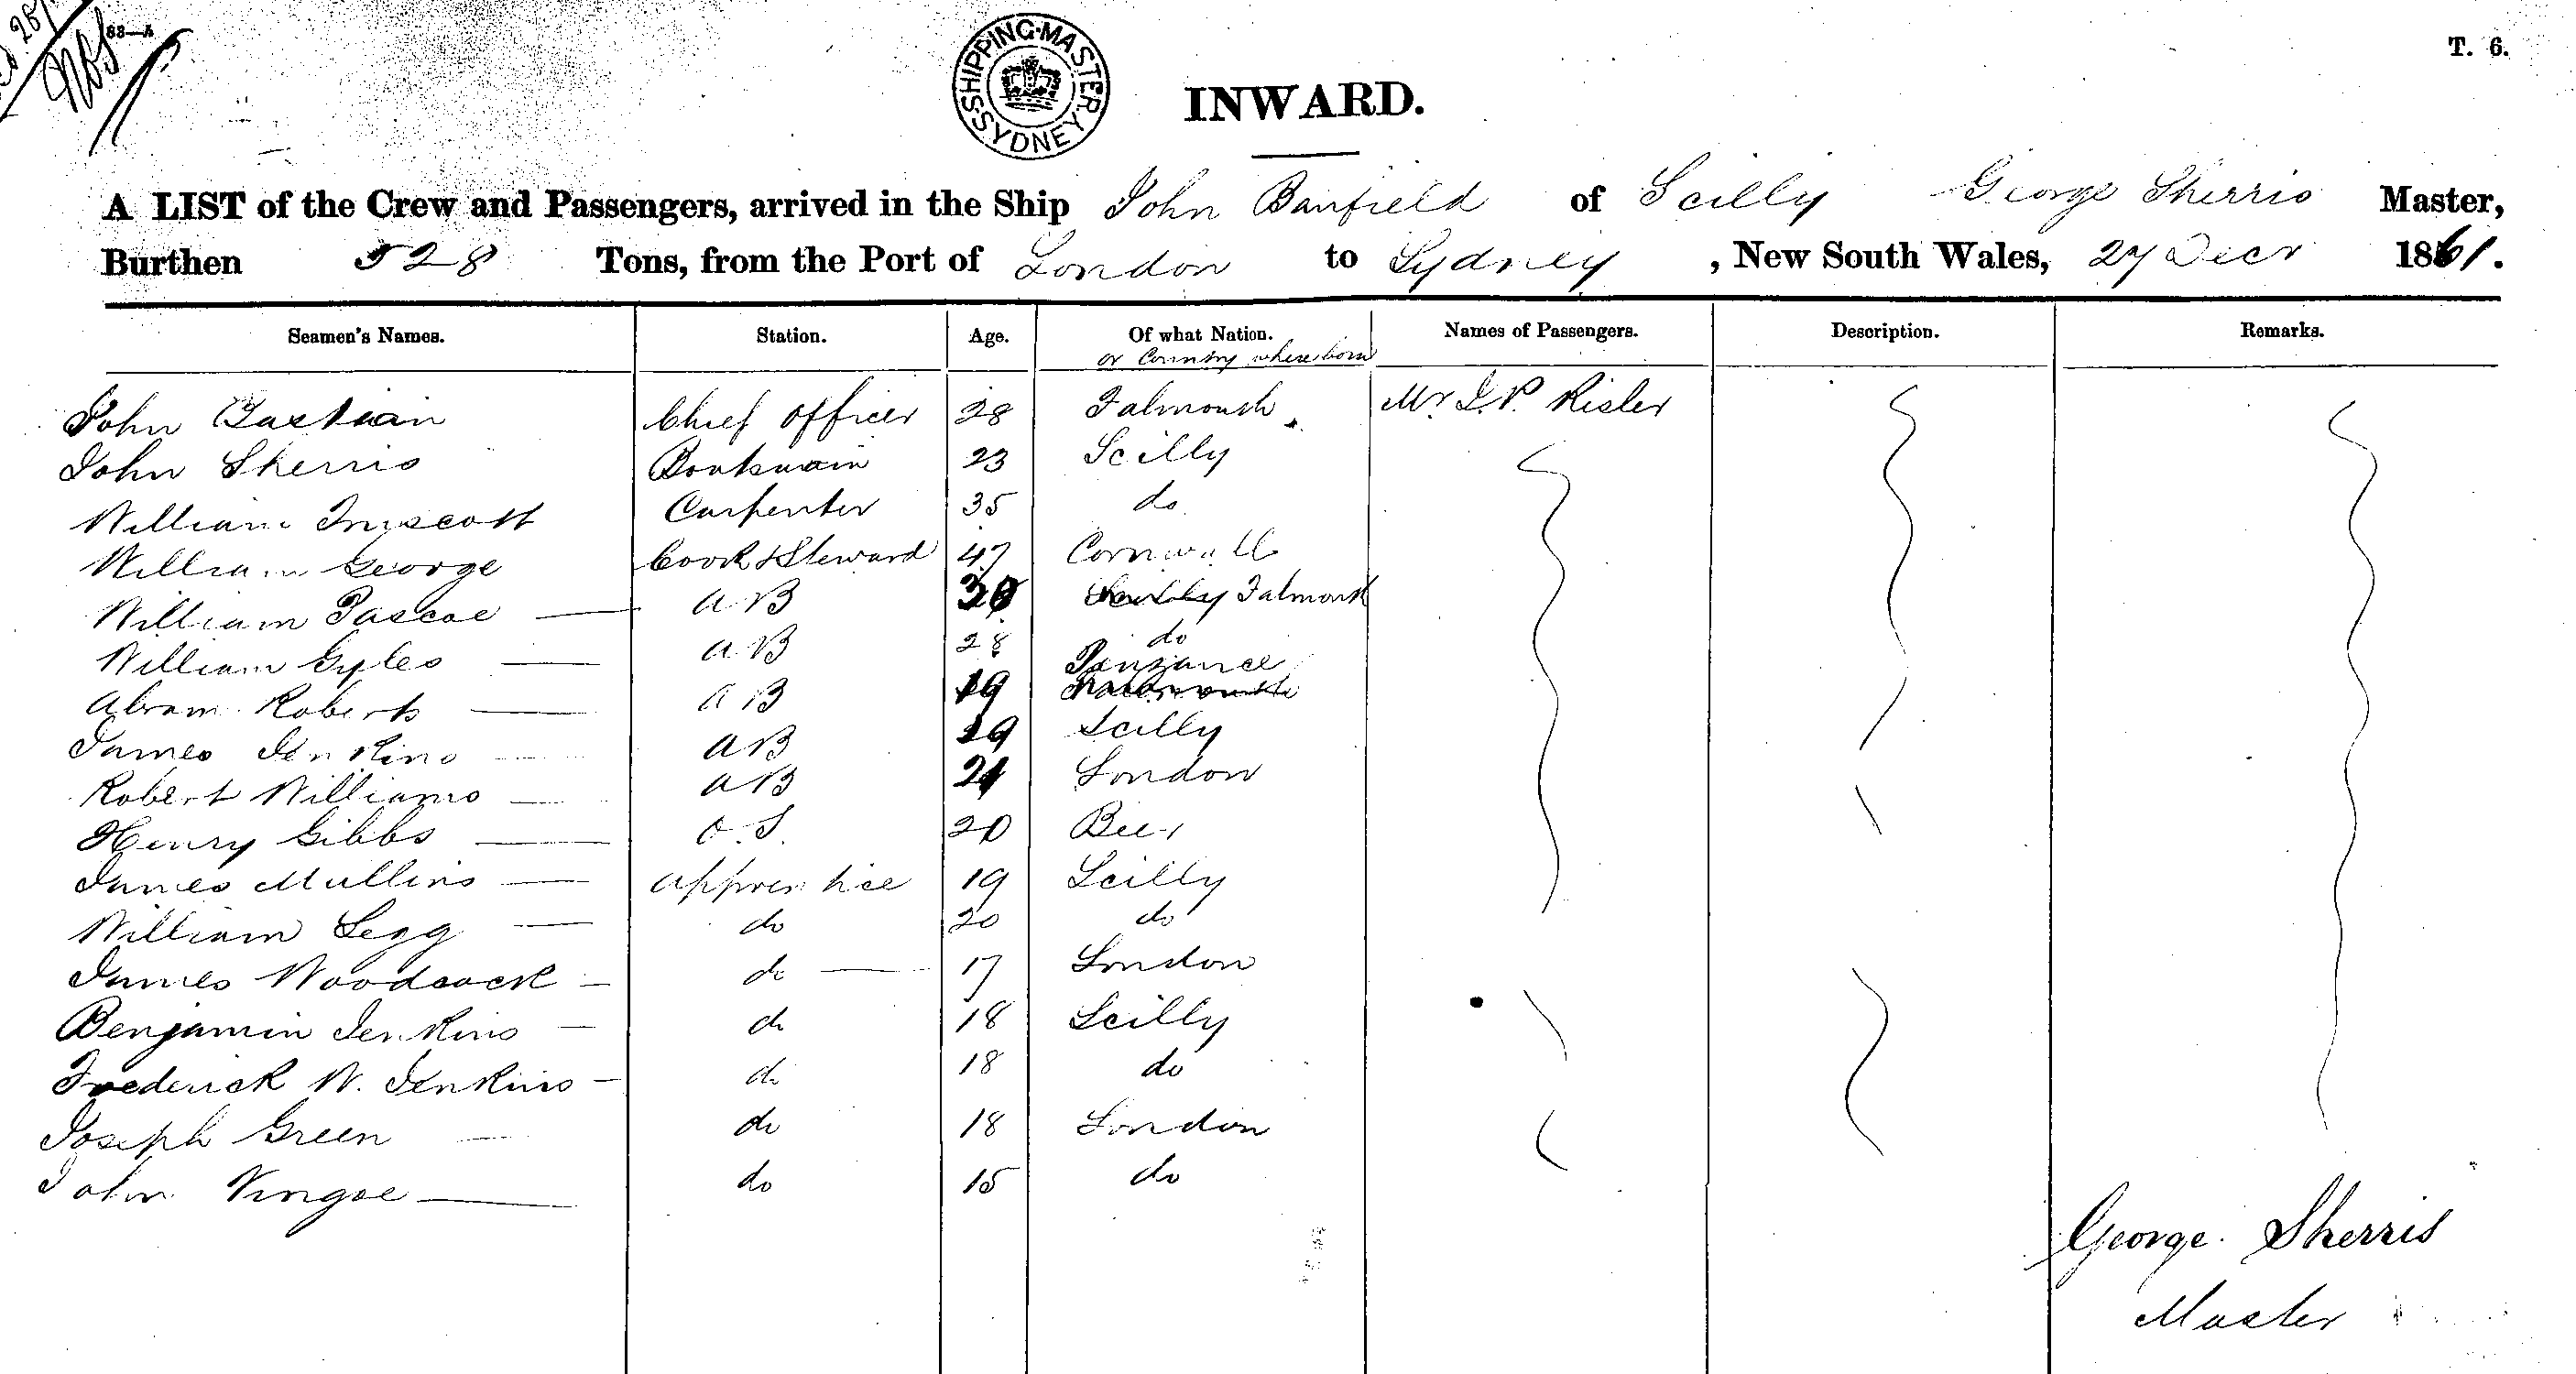 63—A
T. 6.
SHIPPING MASTER SYDNEY
INWARD.
A LIST of the Crew and Passengers, arrived in the Ship John Banfield of Scilly George Sherris Master,
Burthen 528 Tons, from the Port of London to Sydney , New South Wales, 27 Decr 1861.
Seamen's Names. Station. Age. Of what Nation. Names of Passengers. Description. Remarks.
or Country where born
John Bastian Chief Officer 28 Falmouth Mr J. P. Risler
John Sherris Boatswain 23 Scilly
William Truscott Carpenter 35 do
William George Cook & Steward 47 Cornwall
William Pascoe A B Scilly Falmouth
William Gyles A B 28 do
Abram Roberts A B 19 Penzance Falmouth
James Jenkins A B 19 Scilly
Robert Williams A B 21 London
Henry Gibbs O. S. 20 Beer
James Mullins Apprentice 19 Scilly
William Legg do 20 do
James Woodcock do 17 London
Benjamin Jenkins do 18 Scilly
Frederick W. Jenkins do 18 do
Joseph Green do 18 London
John Vingoe do 15 do
George Sherris
Master